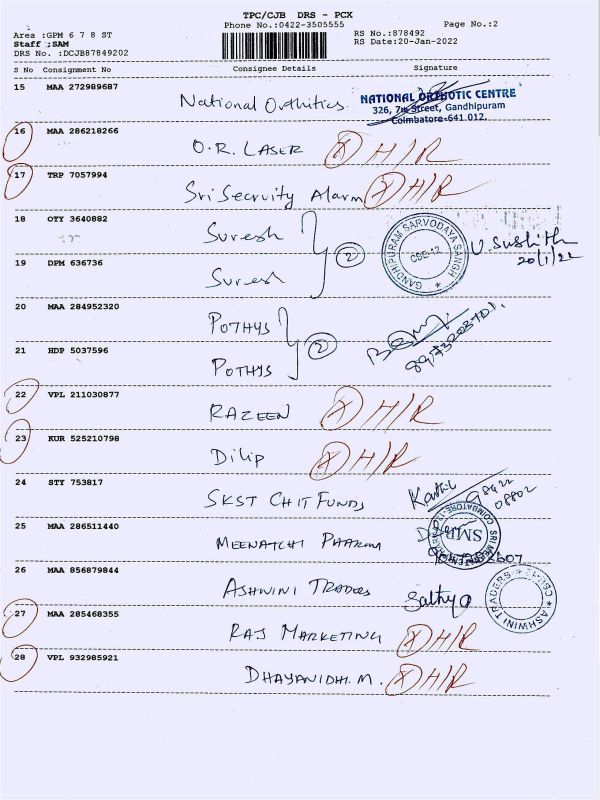 TPC/CJB DRS - PCX
Phone No.:0422-3505555
Page No.:2
Area :GPM 6 7 8 ST
RS No.:878492
Staff :SAM
RS Date:20-Jan-2022
DRS No. :DCJB87849202
S No Consignment No Consignee Details Signature
15 MAA 272989687
National Orthitics
NATIONAL ORTHOTIC CENTRE
326, 7th Street, Gandhipuram
Coimbatore-641 012.
16 MAA 286218266
O.R. LASER X H/R
17 TRP 7057994
Sri Secruity Alarm X H/R
18 OTY 3640882
Suresh
2
GANDHIPURAM SARVODAYA SANGH
CBE-12
V. Sushith
20/1/22
19 DPM 636736
Suresh
20 MAA 284952320
POTHYS
2
21 HDP 5037596
POTHYS
22 VPL 211030877
RAZEEN X H/R
23 KUR 525210798
Dilip X H/R
24 STY 753817
SKST CHIT FUNDS
25 MAA 286511440
MEENATCHI PHARMA
SMP
26 MAA 856879844
ASHWINI TRADERS
Sathya
ASHWINI TRADERS
27 MAA 285468355
RAJ MARKETING X H/R
28 VPL 932985921
DHAYANIDHI. M. X H/R